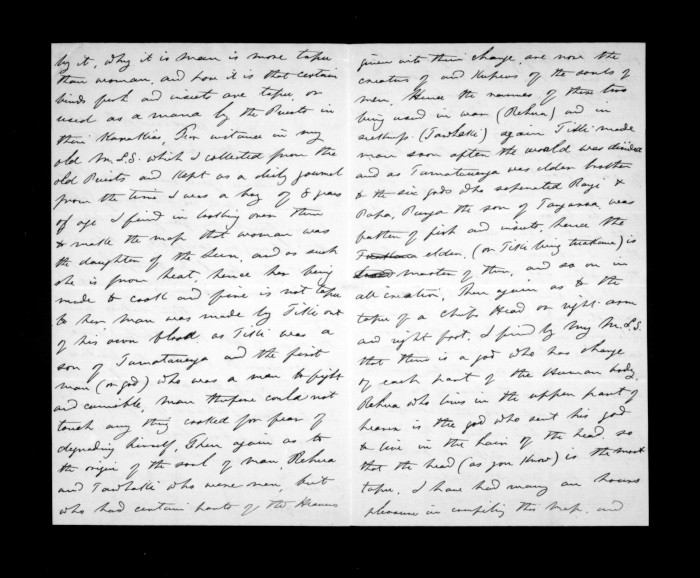 by it, why it is man is more tapu
than woman, and how it is that certain
birds fish and insects are tapu or
used as a mana by the Priests in
their Karakias, For instance in my
old M.S.S. which I collected from the
old Priests and kept as a daily journal
from the time I was a boy of 8 years
of age I find in looking over them
to make the map that woman was
the daughter of the Sun, and as such
she is from heat hence her being
made to cook and fire is not tapu
to her man was made by Tiki out
of his own blood as Tiki was a
son of Tumatauenga and the first
man (or god) who was a man to fight
and cannible, man therefore could not
touch any thing cooked for fear of
degrading himself, Then again as to
the origin of the soul of man, Rehua
and Tawhaki who were men, but
who had certain parts of the Heavens
given into their charge, are now the
creators of and Keepers of the souls of
men, Hence the names of these two
being used in war (Rehua) and in
sickness (Tawhaki) again Tiki made
man soon after the world was divided
and as Tumatauenga was elder brother
to the six gods who seperated Rangi &
Papa, Punga the son of Tangaroa was
father of fish and insects, hence the
elder, (or Tiki being tuakana) is
master of them, and so on in
all creation, Then again as to the
tapu of a chiefs Head or right arm
and right foot, I find by my M.S.S.
that there is a god who has charge
of each part of the Human body,
Rehua who lives in the upper part of
heaven is the god who sent his god
to live in the hair of the head, so
that the head (as you know) is the most
tapu, I have had many an hours
pleasure in compiling this map, and